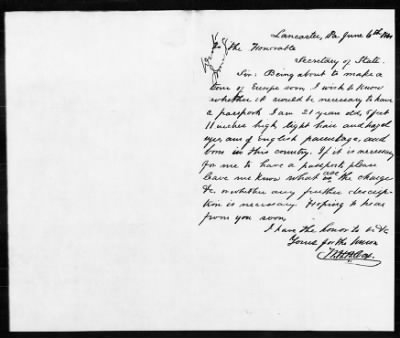 Lancaster, Pa June 6th
To the Honorable
Secretary of State.
Sir: Being about to make a
tour of Europe soon, I wish to know
whether it would be necessary to have
a passport. I am 21 years old, 5 feet
11 inches high, light hair and hazel
eyes, am of English parentage, and
born in this country. If it is necessary
for me to have a passport, please
leave me know what are the charge
&c. or whether any further descrip-
tion is necessary. Hoping to hear
from you soon,
I have the honor to be &c
Yours for the Union